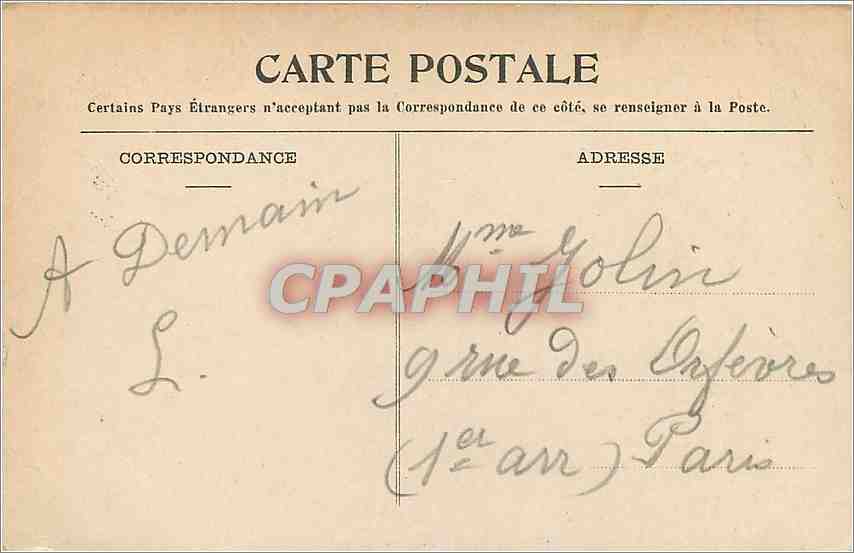 CARTE POSTALE
Certains Pays Étrangers n'acceptant pas la Correspondance de ce côté, se renseigner à la Poste.
CORRESPONDANCE
A Demain
L.
ADRESSE
Mme Jolin
9 rue des Orfèvres
(1er arr) Paris
CPAPHIL